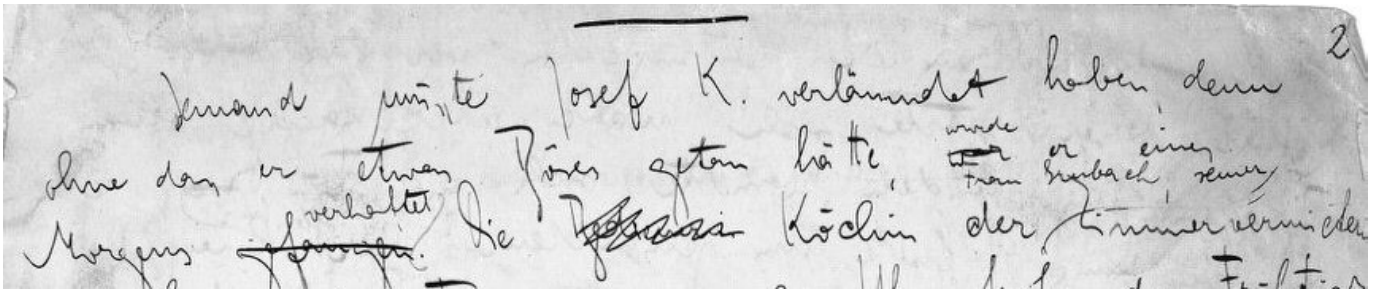 2
Jemand mußte Josef K. verläumdet haben, denn
ohne daß er etwas Böses getan hätte, wurde war er eines
Morgens gefangen verhaftet. Die Köchin der Frau Grubach, seiner Zimmervermieterin